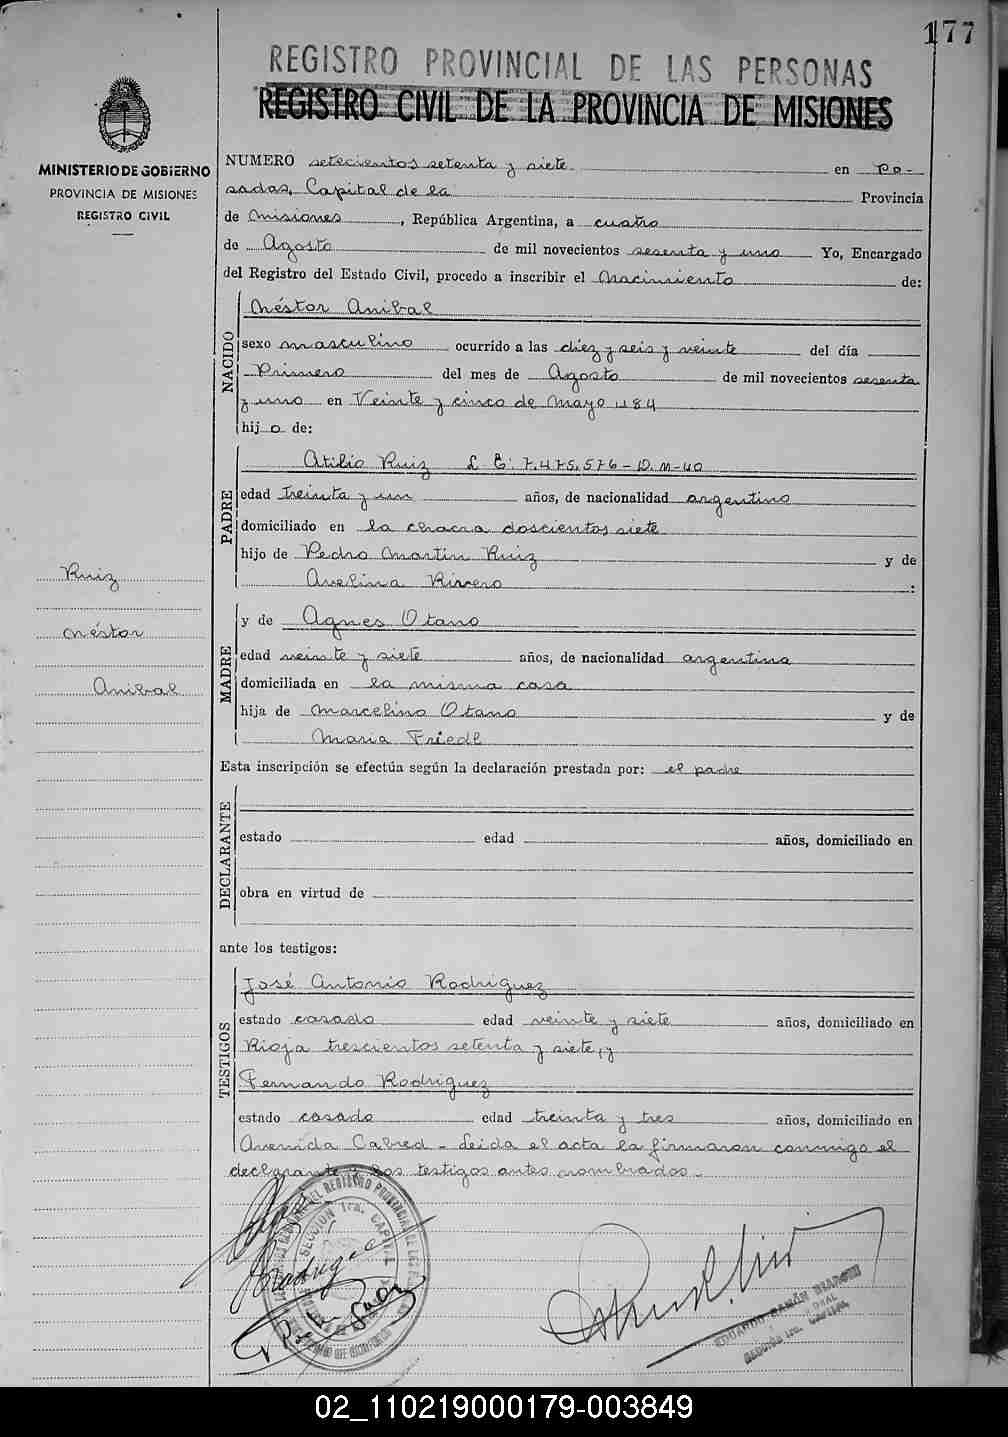 177
REGISTRO PROVINCIAL DE LAS PERSONAS
REGISTRO CIVIL DE LA PROVINCIA DE MISIONES
MINISTERIO DE GOBIERNO
PROVINCIA DE MISIONES
REGISTRO CIVIL
NUMERO setecientos setenta y siete en Po-
sadas, Capital de la Provincia
de Misiones, República Argentina, a cuatro
de Agosto de mil novecientos sesenta y uno Yo, Encargado
del Registro del Estado Civil, procedo a inscribir el Nacimiento de:
NACIDO
Néstor Anibal
sexo masculino ocurrido a las diez y seis y veinte del día
Primero del mes de Agosto de mil novecientos sesenta
y uno en Veinte y cinco de Mayo 184
hijo de:
PADRE
Atilio Ruiz L E: 7.475.576 - D. M-40
edad treinta y un años, de nacionalidad argentino
domiciliado en la chacra doscientos siete
hijo de Pedro Martin Ruiz y de
Avelina Rivero :
Ruiz
Néstor
Anibal
MADRE
y de Agnes Otano
edad veinte y siete años, de nacionalidad argentina
domiciliada en la misma casa
hija de Marcelino Otano y de
Maria Friedl
Esta inscripción se efectúa según la declaración prestada por: el padre
DECLARANTE
estado edad años, domiciliado en
obra en virtud de
ante los testigos:
TESTIGOS
José Antonio Rodriguez
estado casado edad veinte y siete años, domiciliado en
Rioja trescientos setenta y siete, y
Fernando Rodriguez
estado casado edad treinta y tres años, domiciliado en
Avenida Cabred - Leida el acta la firmaron conmigo el
declarante y los testigos antes nombrados.
SECCION 1ra. CAPITAL
EDUARDO RAMÓN
SECCION 1ra. CAPITAL
02_110219000179-003849